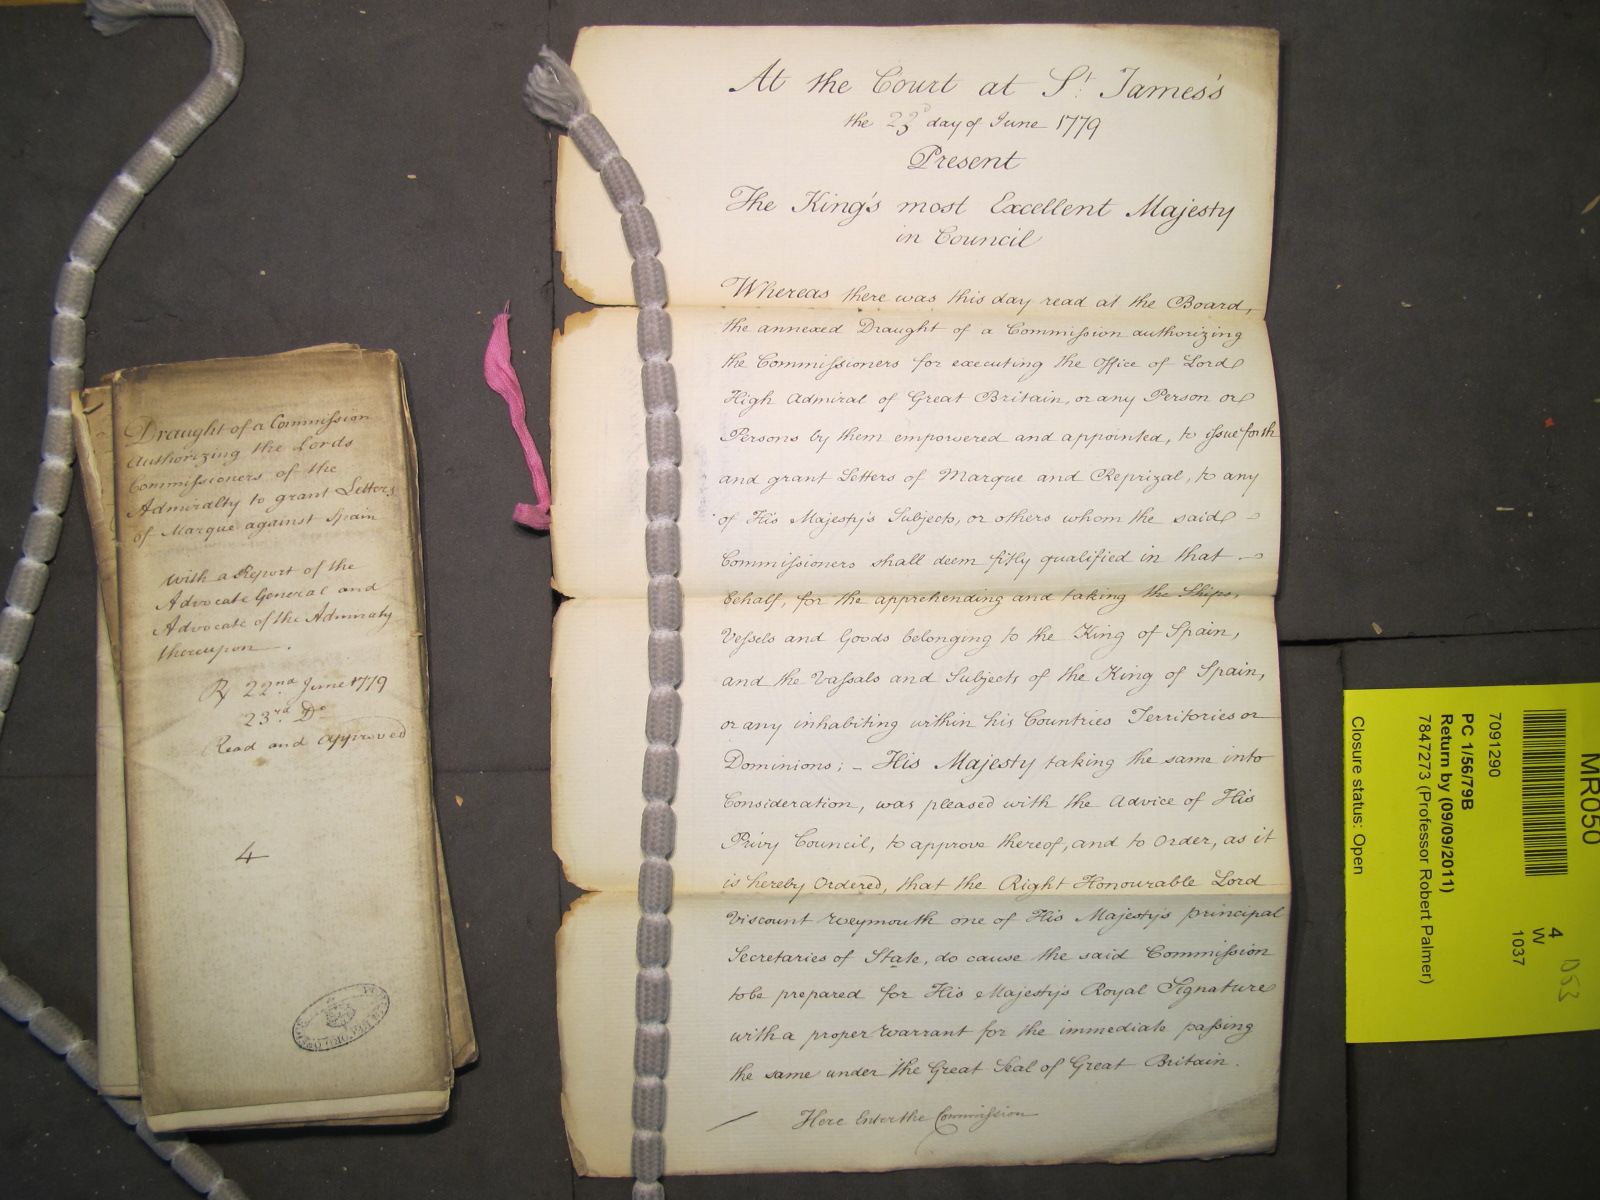 Draught of a Commission
Authorizing the Lords
Commissioners of the
Admiralty to grant Letters
of Marque against Spain
with a Report of the
Advocate General and
Advocate of the Admiralty
thereupon.
22nd June 1779
23rd Do
Read and approved
4
At the Court at St James's
the 23d day of June 1779
Present
The King's most Excellent Majesty
in Council
Whereas there was this day read at the Board,
the annexed Draught of a Commission authorizing
the Commissioners for executing the Office of Lord
High Admiral of Great Britain, or any Person or
Persons by them empowered and appointed, to issue forth
and grant Letters of Marque and Reprizal, to any
of His Majesty's Subjects, or others whom the said
Commissioners shall deem fitly qualified in that
behalf, for the apprehending and taking the Ships,
Vessels and Goods belonging to the King of Spain,
and the Vassals and Subjects of the King of Spain,
or any inhabiting within his Countries Territories or
Dominions; - His Majesty taking the same into
Consideration, was pleased with the Advice of His
Privy Council, to approve thereof, and to Order, as it
is hereby Ordered, that the Right Honourable Lord
Viscount Weymouth one of His Majesty's principal
Secretaries of State, do cause the said Commission
to be prepared for His Majesty's Royal Signature
with a proper Warrant for the immediate passing
the same under the Great Seal of Great Britain.
Here Enter the Commission
MR050
7091290
PC 1/56/79B
Return by (09/09/2011)
7847273 (Professor Robert Palmer)
Closure status: Open
4
W
1037
053